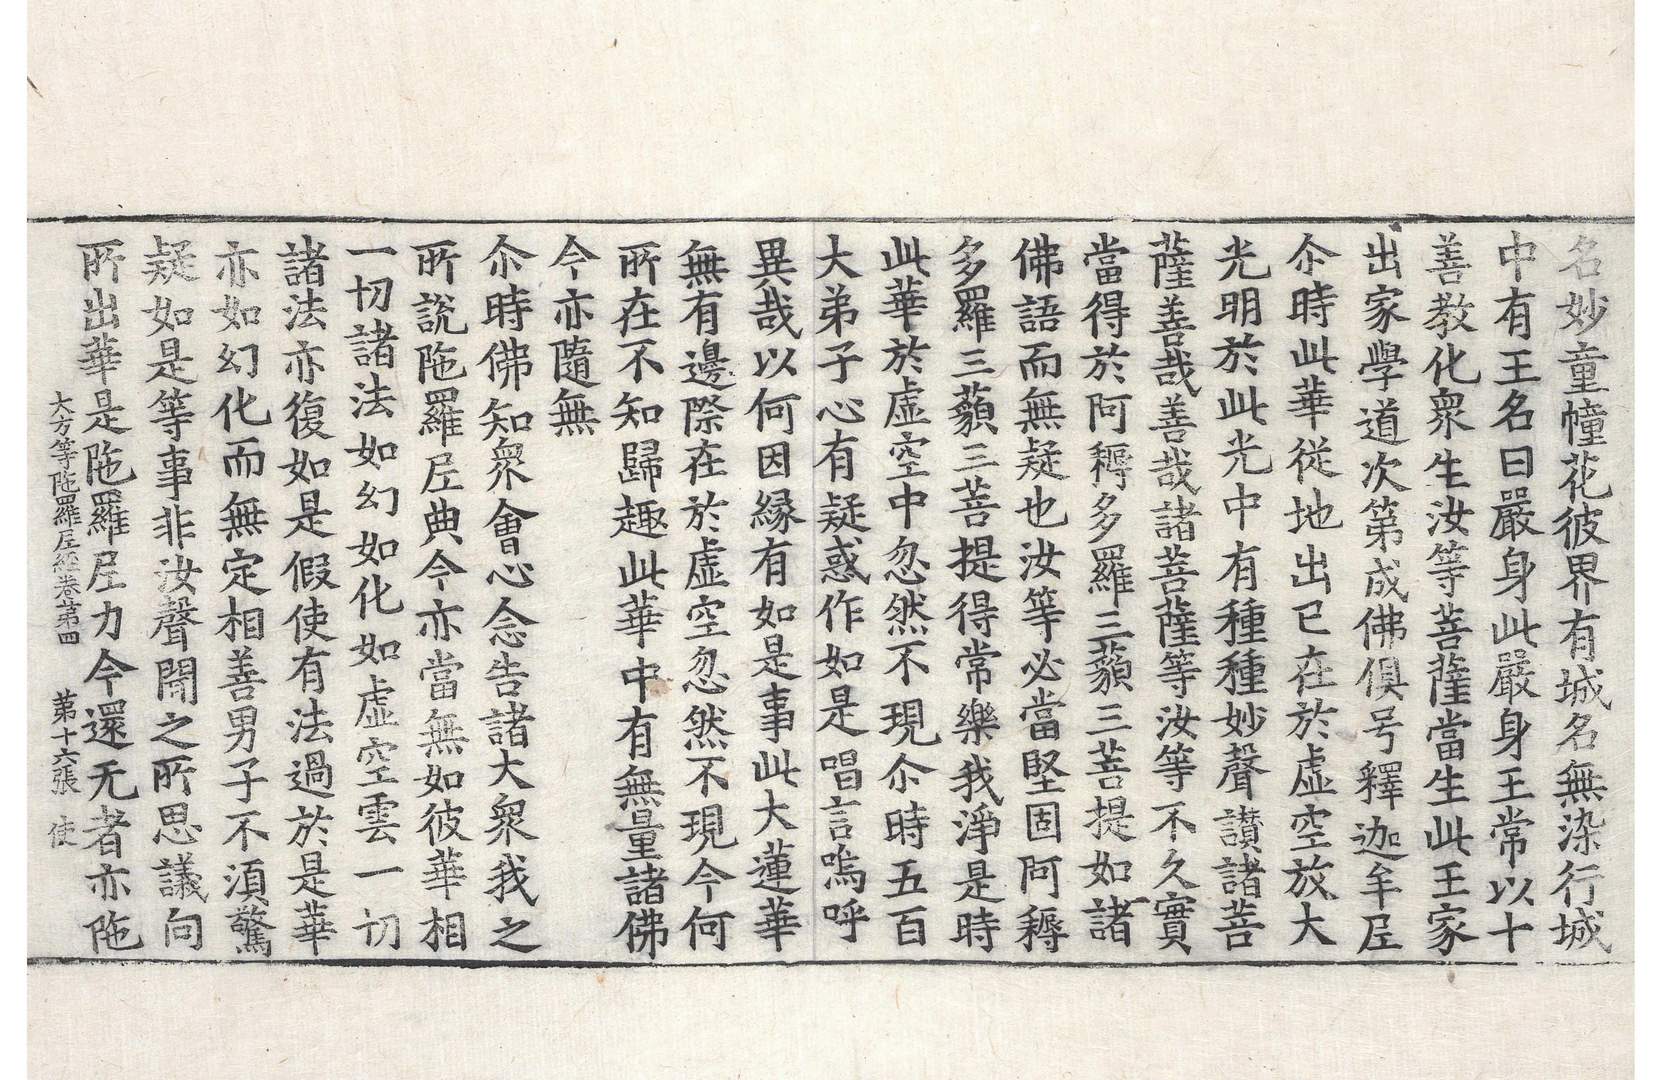 名妙童幢花彼界有城名無染行城
中有王名曰嚴身此嚴身王常以十
善教化衆生汝等菩薩當生此王家
出家學道次第成佛俱号釋迦牟尼
尒時此華從地出已在於虛空放大
光明於此光中有種種妙聲讃諸菩
薩善哉善哉諸菩薩等汝等不久實
當得於阿耨多羅三藐三菩提如諸
佛語而無疑也汝等必當堅固阿耨
多羅三藐三菩提得常樂我淨是時
此華於虛空中忽然不現尒時五百
大弟子心有疑惑作如是唱言嗚呼
異哉以何因緣有如是事此大蓮華
無有邊際在於虛空忽然不現今何
所在不知歸趣此華中有無量諸佛
今亦隨無
尒時佛知衆會心念告諸大衆我之
所說陁羅尼典今亦當無如彼華相
一切諸法如幻如化如虛空雲一切
諸法亦復如是假使有法過於是華
亦如幻化而無定相善男子不湏驚
疑如是等事非汝聲聞之所思議向
所出華是陁羅尼力今還无者亦陁
大方等陁羅尼經卷第四 第十六張 使